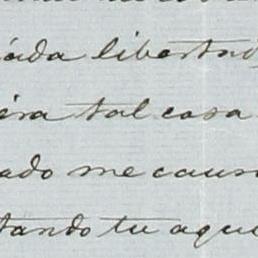 iáda libertad
éra tal cosa
ado me caus
tando tu aqu